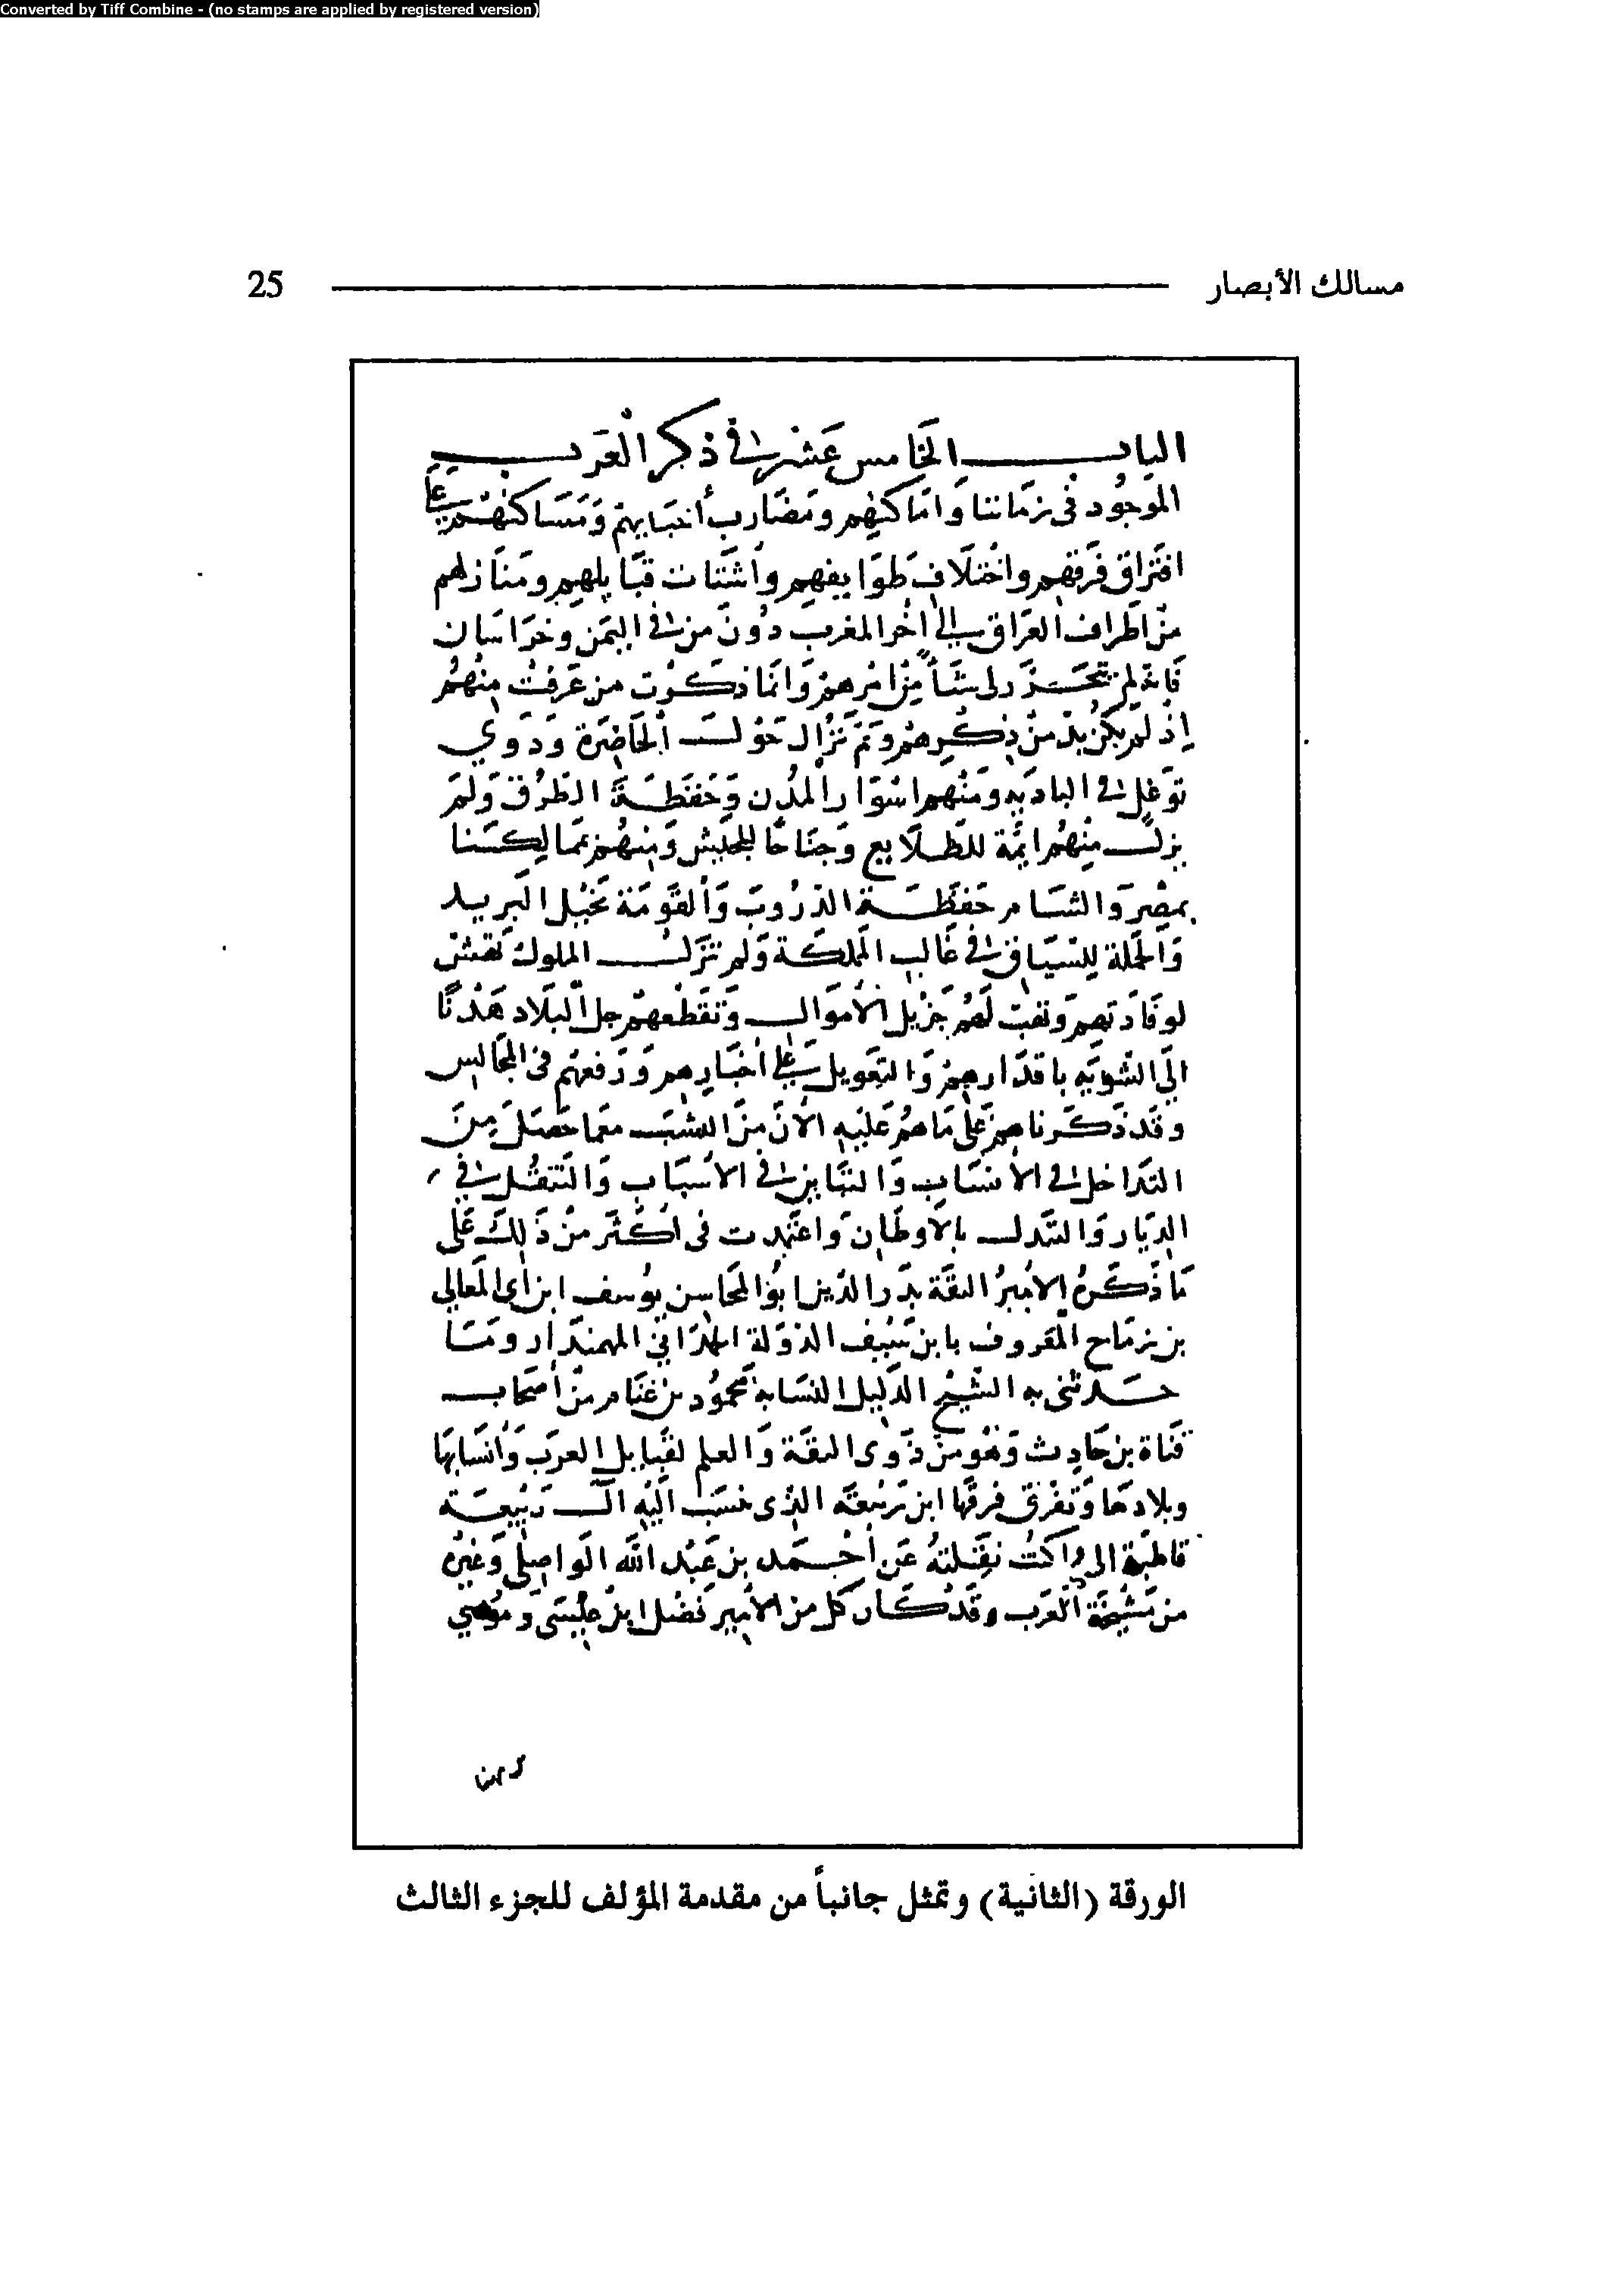 Converted by Tiff Combine - (no stamps are applied by registered version)
مسالك الأبصار 25
الباب الخامس عشر في ذكر العرب
الموجود في زماننا وأماكنهم ومضارب أحيايهم ومساكنهم على
افتراق فرقهم واختلاف طوايفهم وأشتات قبايلهم ومنازلهم
من أطراف العراق إلى آخر المغرب دون من في اليمن وخراسان
فانه لم يتحرر لي شأ من أمرهم وانما ذكرت من عرفت منهم
إذ لم يكن بد من ذكرهم وهم نزال حول الحاضرة وذوي
توغل في الباديه ومنهم اسوار المدن وحفظة الطرق ولم
يزل منهم ايمة للطلايع وجناحا للجيش ومنهم بممالكنا
بمصر والشام حفظة الدروب والقومة بخيل البريد
والحملة للسياق في غالب المملكة ولم تزل الملوك
لوفادتهم لهم جزيل الأموال وتقطعهم جل البلاد هذا
إلى التنويه باقدارهم والتعويل على أخبارهم ورفعهم في المجالس
وقد ذكرناهم على ما هم عليه الآن من النسب مما حصل من
التداخل في الأنساب والتباين في الأسباب والتنقل في
الديار والتبدل بالأوطان واعتمدت في أكثر من ذلك على
ما ذكره الأمير الثقة بدر الدين ابو المحاسن يوسف ابن أبي المعالي
بن زماح المعروف بابن سيف الدولة الحمداني المهمندار وما
حدثني به الشيخ الدليل النسابه محمود بن غنام من أصحاب
قناة بن حارث وهو من ذوي الثقة والعلم لقبايل العرب وأنسابها
وبلادها وتفرق فرقها ابن ربيعة الذي ينسب اليه آل ربيعة
قاطبة إلى ما كنت نقلته عن أحمد بن عبد الله الواصلي وغيره
من مشيخة العرب وقد كان كل من الأمير فضل ابن عيسى وموسى
الورقة (الثانية) وتمثل جانباً من مقدمة المؤلف للجزء الثالث